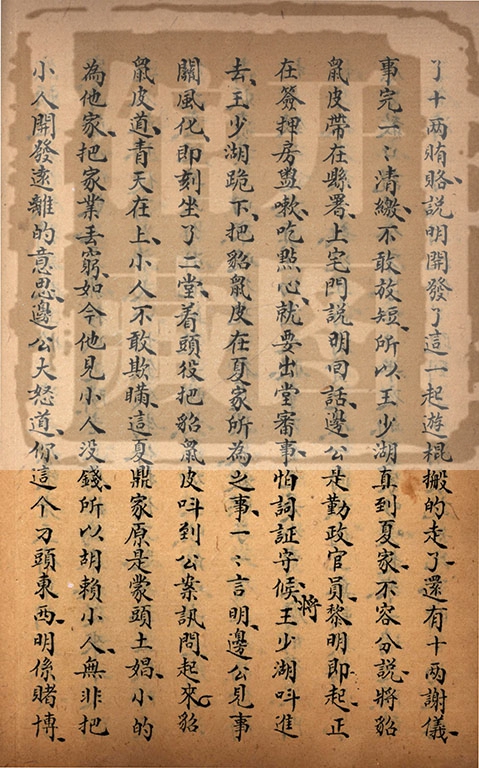 了十两賄賂説明開發了這一起遊棍搬的走了還有十两謝儀
事完一〻清繳不敢放短所以王少湖真到夏家不容分説將貂
鼠皮帶在縣署上宅門説明回話邊公是勤政官員黎明即起正
在簽押房盥嗽吃㸃心就要出堂審事怕詞証守候將王少湖呌進
去王少湖跪下把貂鼠皮在夏家所為之事一〻言明邊公見事
關風化即刻坐了二堂着頭役把貂鼠皮呌到公案訊問起來貂
鼠皮道青天在上小人不敢欺瞞這夏鼎家原是蒙頭土娼小的
為他家把家業丢窮如今他見小人没錢所以胡賴小人無非把
小人開發遠離的意思邊公大怒道你這个刁頭東西明係賭博